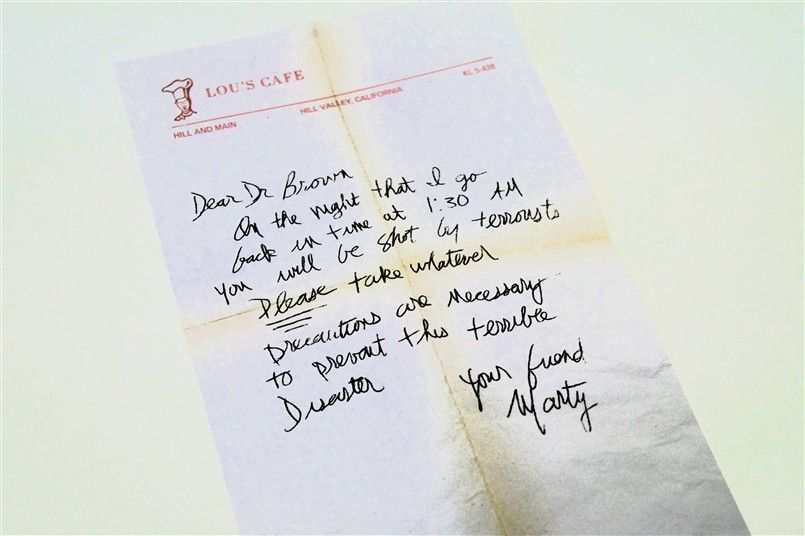 LOU'S CAFE
KL 5-438
HILL VALLEY, CALIFORNIA
HILL AND MAIN
Dear Dr Brown
On the night that I go
back in time at 1:30 AM
you will be shot by terrorists
Please take whatever
precautions are necessary
to prevent this terrible
Disaster
Your friend
Marty